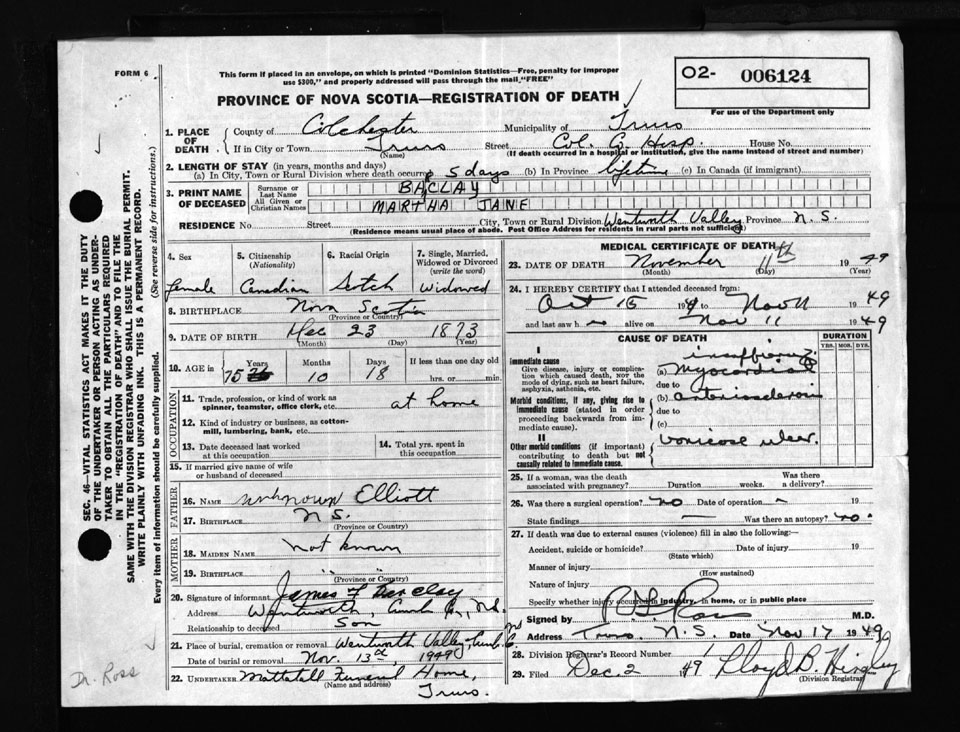 FORM 6
This form if placed in an envelope, on which is printed "Dominion Statistics—Free, penalty for improper
use $300," and properly addressed will pass through the mail, "FREE"
O2- 006124
For use of the Department only
PROVINCE OF NOVA SCOTIA—REGISTRATION OF DEATH
1. PLACE OF DEATH
County of Colchester Municipality of Truro
If in City or Town Truro Street Col. Co. Hosp. House No.
(Name) (If death occurred in a hospital or institution, give the name instead of street and number)
2. LENGTH OF STAY (in years, months and days)
(a) In City, Town or Rural Division where death occurred 5 days (b) In Province lifetime (c) In Canada (if immigrant)
3. PRINT NAME OF DECEASED
Surname or Last Name BACLAY
All Given or Christian Names MARTHA JANE
RESIDENCE No. Street City, Town or Rural Division Wentworth Valley Province N.S.
(Residence means usual place of abode. Post Office Address for residents in rural parts not sufficient)
4. Sex
female
5. Citizenship (Nationality)
Canadian
6. Racial Origin
Scotch
7. Single, Married, Widowed or Divorced (write the word)
Widowed
8. BIRTHPLACE Nova Scotia
(Province or Country)
9. DATE OF BIRTH Dec 23 1873
(Month) (Day) (Year)
10. AGE in Years Months Days If less than one day old
75 10 18 hrs. or min.
OCCUPATION
11. Trade, profession, or kind of work as
spinner, teamster, office clerk, etc. at home
12. Kind of industry or business, as cotton-
mill, lumbering, bank, etc.
13. Date deceased last worked
at this occupation
14. Total yrs. spent in
this occupation
15. If married give name of wife
or husband of deceased
FATHER
16. NAME unknown Elliott
17. BIRTHPLACE N.S.
(Province or Country)
MOTHER
18. MAIDEN NAME not known
19. BIRTHPLACE " "
(Province or Country)
20. Signature of informant James F Barclay
Address Wentworth, Cumb Co., N.S.
Relationship to deceased Son
21. Place of burial, cremation or removal Wentworth Valley, Cumb. Co.
Date of burial or removal Nov. 13th 1949
22. UNDERTAKER Mattatall Funeral Home,
(Name and address) Truro.
MEDICAL CERTIFICATE OF DEATH
23. DATE OF DEATH November 11th 1949
(Month) (Day) (Year)
24. I HEREBY CERTIFY that I attended deceased from:
Oct 15 1949 to Nov 11 1949
and last saw h alive on Nov 11 1949
CAUSE OF DEATH
DURATION
YRS. MOS. DYS.
I
Immediate cause
Give disease, injury or complica-
tion which caused death, not the
mode of dying, such as heart failure,
asphyxia, asthenia, etc.
insufficiency
(a) myocardial
due to
Morbid conditions, if any, giving rise to
immediate cause (stated in order
proceeding backwards from im-
mediate cause).
(b) arteriosclerosis
due to
(c)
II
Other morbid conditions (if important)
contributing to death but not
causally related to immediate cause.
varicose ulcer.
25. If a woman, was the death
associated with pregnancy? Duration weeks. Was there
a delivery?
26. Was there a surgical operation? no Date of operation - 19
State findings — Was there an autopsy? no.
27. If death was due to external causes (violence) fill in also the following:—
Accident, suicide or homicide? Date of injury 19
(State which)
Manner of injury
(How sustained)
Nature of injury
Specify whether injury occurred in industry, in home, or in public place
Signed by Ross M.D.
Address Truro. N.S. Date Nov 17 1949
28. Division Registrar's Record Number
29. Filed Dec. 2 49 Lloyd B. Hingley
(Division Registrar)
SEC. 46—VITAL STATISTICS ACT MAKES IT THE DUTY
OF THE UNDERTAKER OR PERSON ACTING AS UNDER-
TAKER TO OBTAIN ALL THE PARTICULARS REQUIRED
IN THE "REGISTRATION OF DEATH" AND TO FILE THE
SAME WITH THE DIVISION REGISTRAR WHO SHALL ISSUE THE BURIAL PERMIT.
WRITE PLAINLY WITH UNFADING INK. THIS IS A PERMANENT RECORD.
Every item of information should be carefully supplied. (See reverse side for instructions.)
Dr. Ross